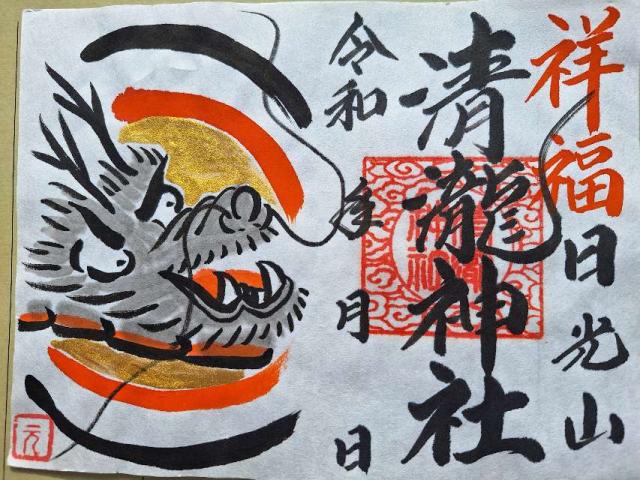 祥福日光山
清瀧神社
令和 年 月 日
元